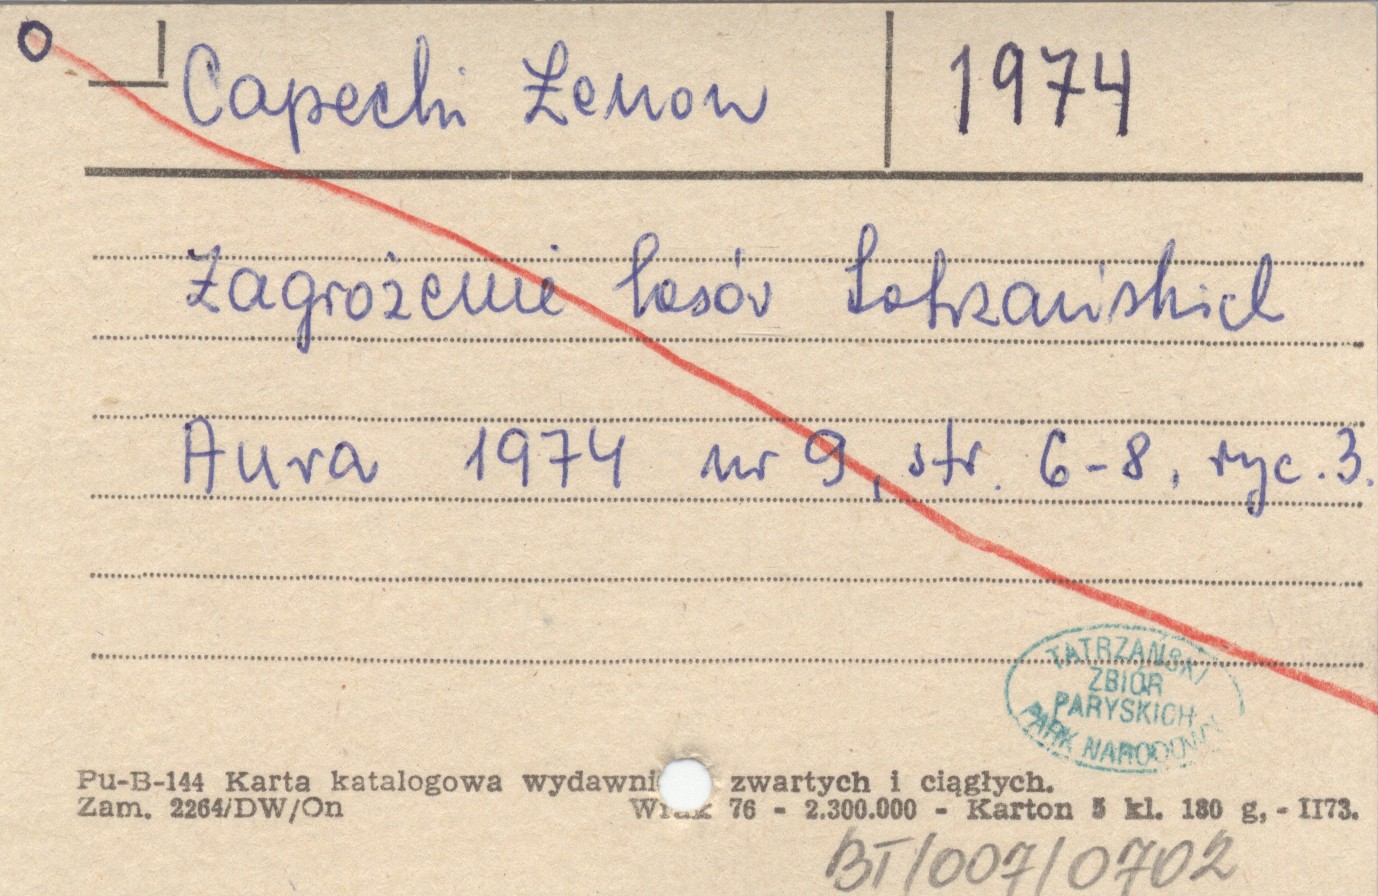 Capecki Zenon 1974
Zagrożenie lasów tatrzańskich
Aura 1974 nr 9, str. 6-8, ryc. 3.
TATRZAŃSKI
ZBIÓR
PARYSKICH
PARK NARODOWY
Pu-B-144 Karta katalogowa wydawni zwartych i ciągłych.
Zam. 2264/DW/On 76 - 2.300.000 - Karton 5 kl. 180 g, - II73.
BT/007/0702